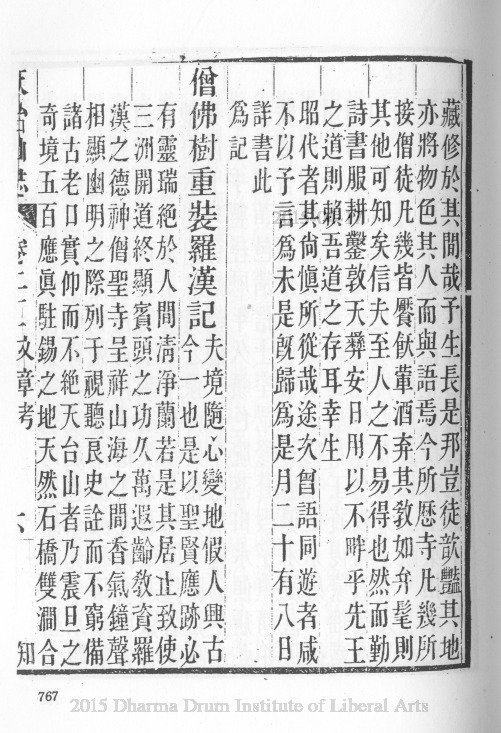 藏修於其間哉予生長是邦豈徒歆豔其地
亦將物色其人而與語焉今所歷寺凡幾所
接僧徒凡幾皆饜飫葷酒弃其教如弁髦則
其他可知矣信夫至人之不易得也然而勤
詩書服耕鑿敦天彝安日用以不畔乎先王
之道則賴吾道之存耳幸生
昭代者其尚愼所從哉途次曾語同遊者咸
不以予言爲未是旣歸爲是月二十有八日
詳書此
爲記
僧佛樹重裝羅漢記夫境隨心變地假人興古
今一也是以聖賢應跡必
有靈瑞絕於人間淸淨蘭若是其居止致使
三洲開道終顯賓頭之功久萬遐齡敎資羅
漢之德神僧聖寺呈祥山海之間香氣鐘聲
相顯幽明之際列于視聽良史詮而不窮備
諸古老口實仰而不絶天台山者乃震旦之
奇境五百應眞駐錫之地天然石橋雙澗合
天台山志 卷二二文章考 六 知
767
2015 Dharma Drum Institute of Liberal Arts